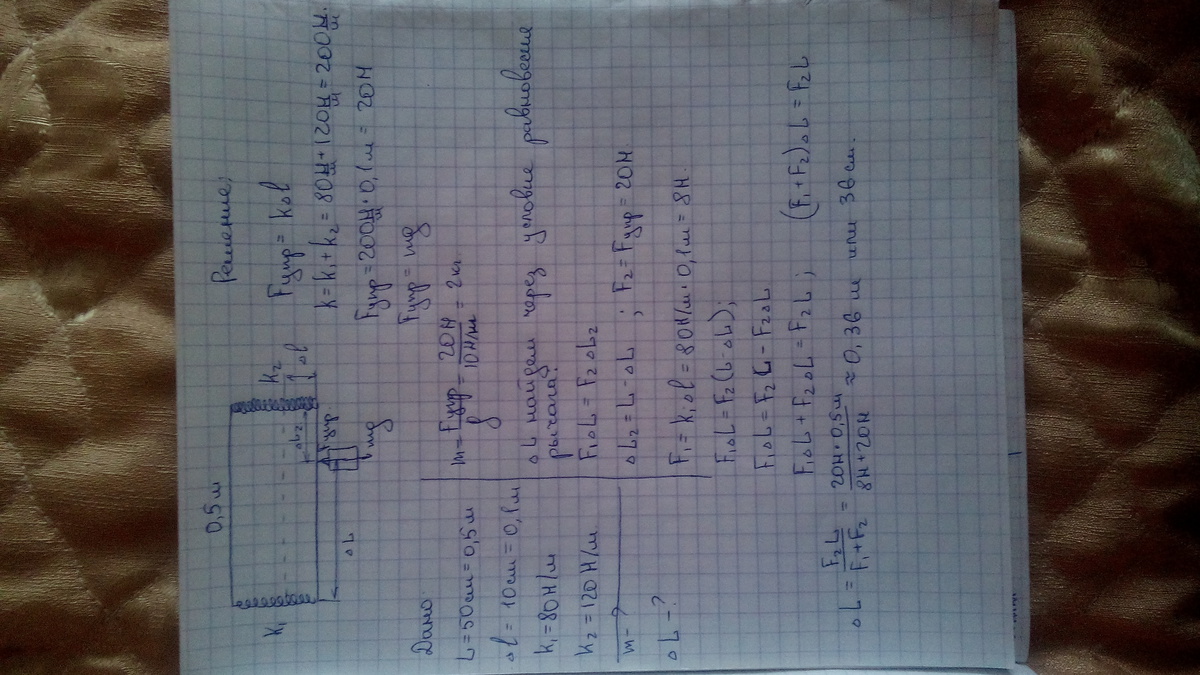 0,5 м
K₁
K₂
Δl
ΔL₂
Fупр
ΔL
mg
Дано
L = 50см = 0,5м
Δl = 10см = 0,1м
k₁ = 80Н/м
k₂ = 120 Н/м
m - ?
ΔL - ?
Решение:
Fупр = kΔl
k = k₁ + k₂ = 80Н/м + 120Н/м = 200Н/м.
Fупр = 200Н/м · 0,1м = 20Н
Fупр = mg
m = Fупр/g = 20Н/10Н/кг = 2кг
ΔL найдем через условие равновесие
рычага:
F₁ΔL = F₂ΔL₂
ΔL₂ = L - ΔL ; F₂ = Fупр = 20Н
F₁ = k₁Δl = 80Н/м · 0,1м = 8Н.
F₁ΔL = F₂(L - ΔL);
F₁ΔL = F₂L - F₂ΔL
F₁ΔL + F₂ΔL = F₂L ; (F₁ + F₂)ΔL = F₂L
ΔL = F₂L/F₁ + F₂ = 20Н · 0,5м/8Н + 20Н ≈ 0,36м или 36 см.